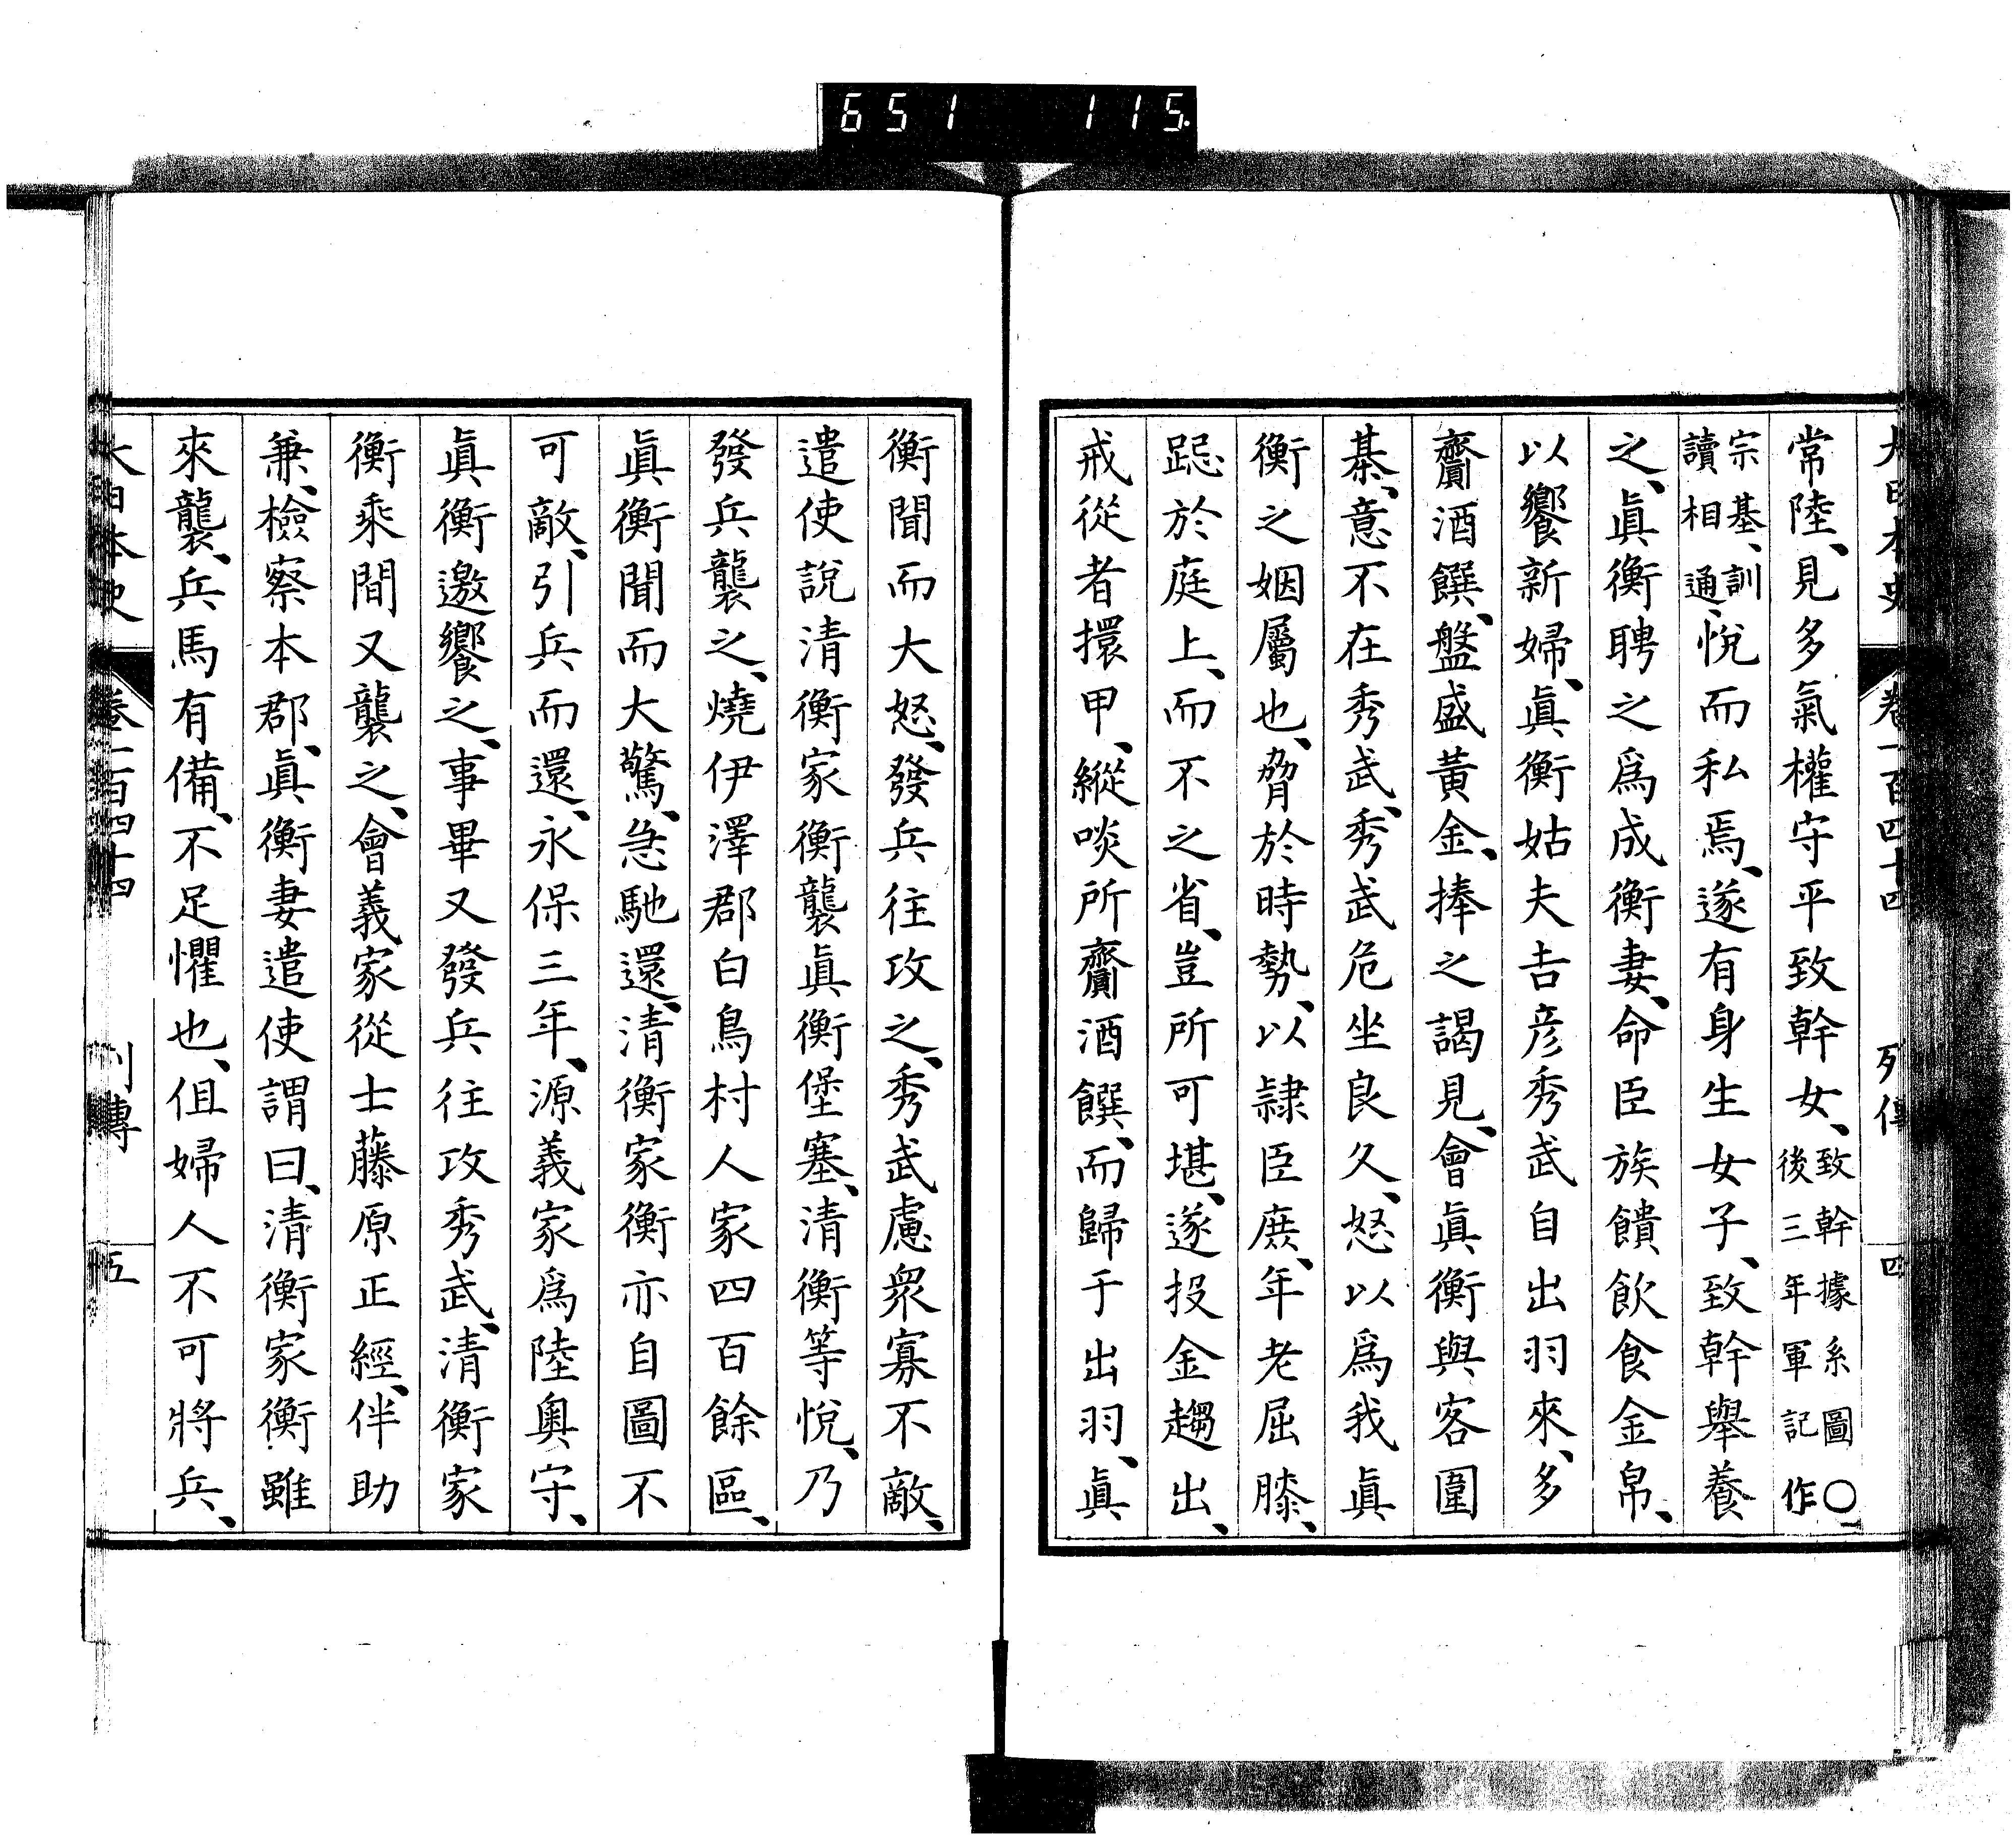 651 115
大日本史 卷一百四十四 列傳 四
常陸、見多氣權守平致幹女、致幹據系圖〇後三年軍記作
宗基、訓讀相通、悅而私焉、遂有身生女子、致幹舉養
之、眞衡聘之爲成衡妻、命臣族饋飲食金帛、
以饗新婦、眞衡姑夫吉彥秀武自出羽來、多
齎酒饌、盤盛黃金、捧之謁見、會眞衡與客圍
棊、意不在秀武、秀武危坐良久、怒以爲我眞
衡之姻屬也、脅於時勢、以隷臣庶、年老屈膝、
跽於庭上、而不之省、豈所可堪、遂投金趨出、
戒從者擐甲、縱啖所齎酒饌、而歸于出羽、眞
衡聞而大怒、發兵往攻之、秀武慮衆寡不敵、
遣使說清衡家衡襲眞衡堡塞、清衡等悅、乃
發兵襲之、燒伊澤郡白鳥村人家四百餘區、
眞衡聞而大驚、急馳還、清衡家衡亦自圖不
可敵、引兵而還、永保三年、源義家爲陸奧守、
眞衡邀饗之、事畢又發兵往攻秀武、清衡家
衡乘間又襲之、會義家從士藤原正經、伴助
兼、檢察本郡、眞衡妻遣使謂曰、清衡家衡雖
來襲、兵馬有備、不足懼也、但婦人不可將兵、
大日本史 卷一百四十四 列傳 五